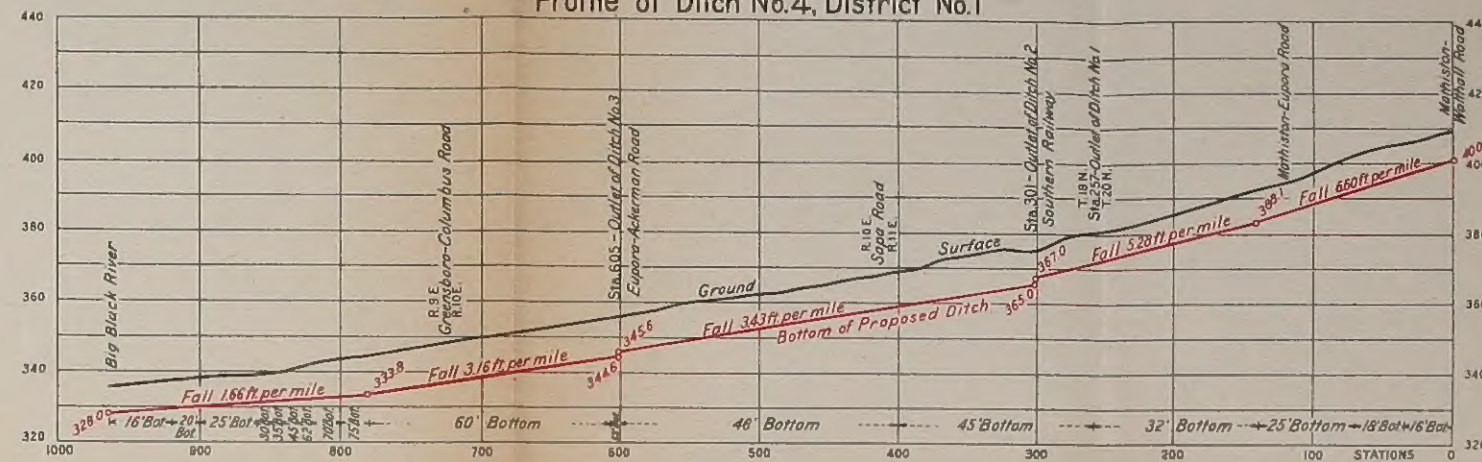 Profile of Ditch No.4, District No.1
440
420
400
380
360
340
320
440
42
400
380
360
340
320
Big Black River
R.9E.
R.10E.
Greensboro-Columbus Road
Sta.605 - Outlet of Ditch No.3
Eupora-Ackerman Road
R.10E.
R.11E.
Sapa Road
Sta.301 - Outlet of Ditch No.2
Southern Railway
T.18 N.
T.20 N.
Sta.257-Outlet of Ditch No.1
Mathiston-Eupora Road
Mathiston-
Walthall Road
Ground Surface
Bottom of Proposed Ditch
328.0
Fall 1.66 ft. per mile
333.8
Fall 3.16 ft. per mile
344.6
345.6
Fall 3.43 ft. per mile
365.0
367.0
Fall 5.28 ft. per mile
388.1
Fall 6.60 ft. per mile
16' Bot.
20' Bot.
25' Bot.
30' Bot.
35' Bot.
45' Bot.
62' Bot.
70' Bot.
75' Bot.
60' Bottom
46' Bottom
45' Bottom
32' Bottom
25' Bottom
18' Bot.
16' Bot.
1000 900 800 700 600 500 400 300 200 100 STATIONS 0